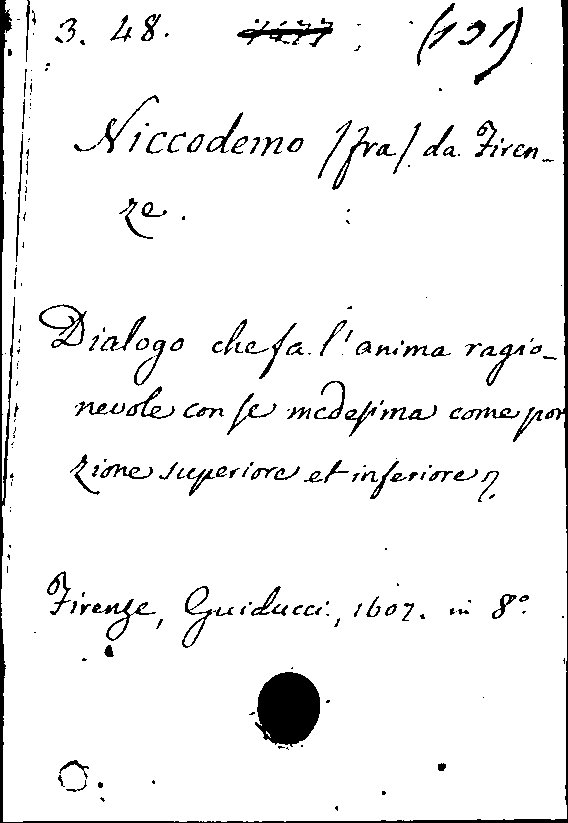 3. 48. (191)
Niccodemo /fra/ da Firen-
ze.
Dialogo che fa l'anima ragio-
nevole con se medesima come por
zione superiore et inferiore
Firenze, Guiducci, 1607. in 8°.